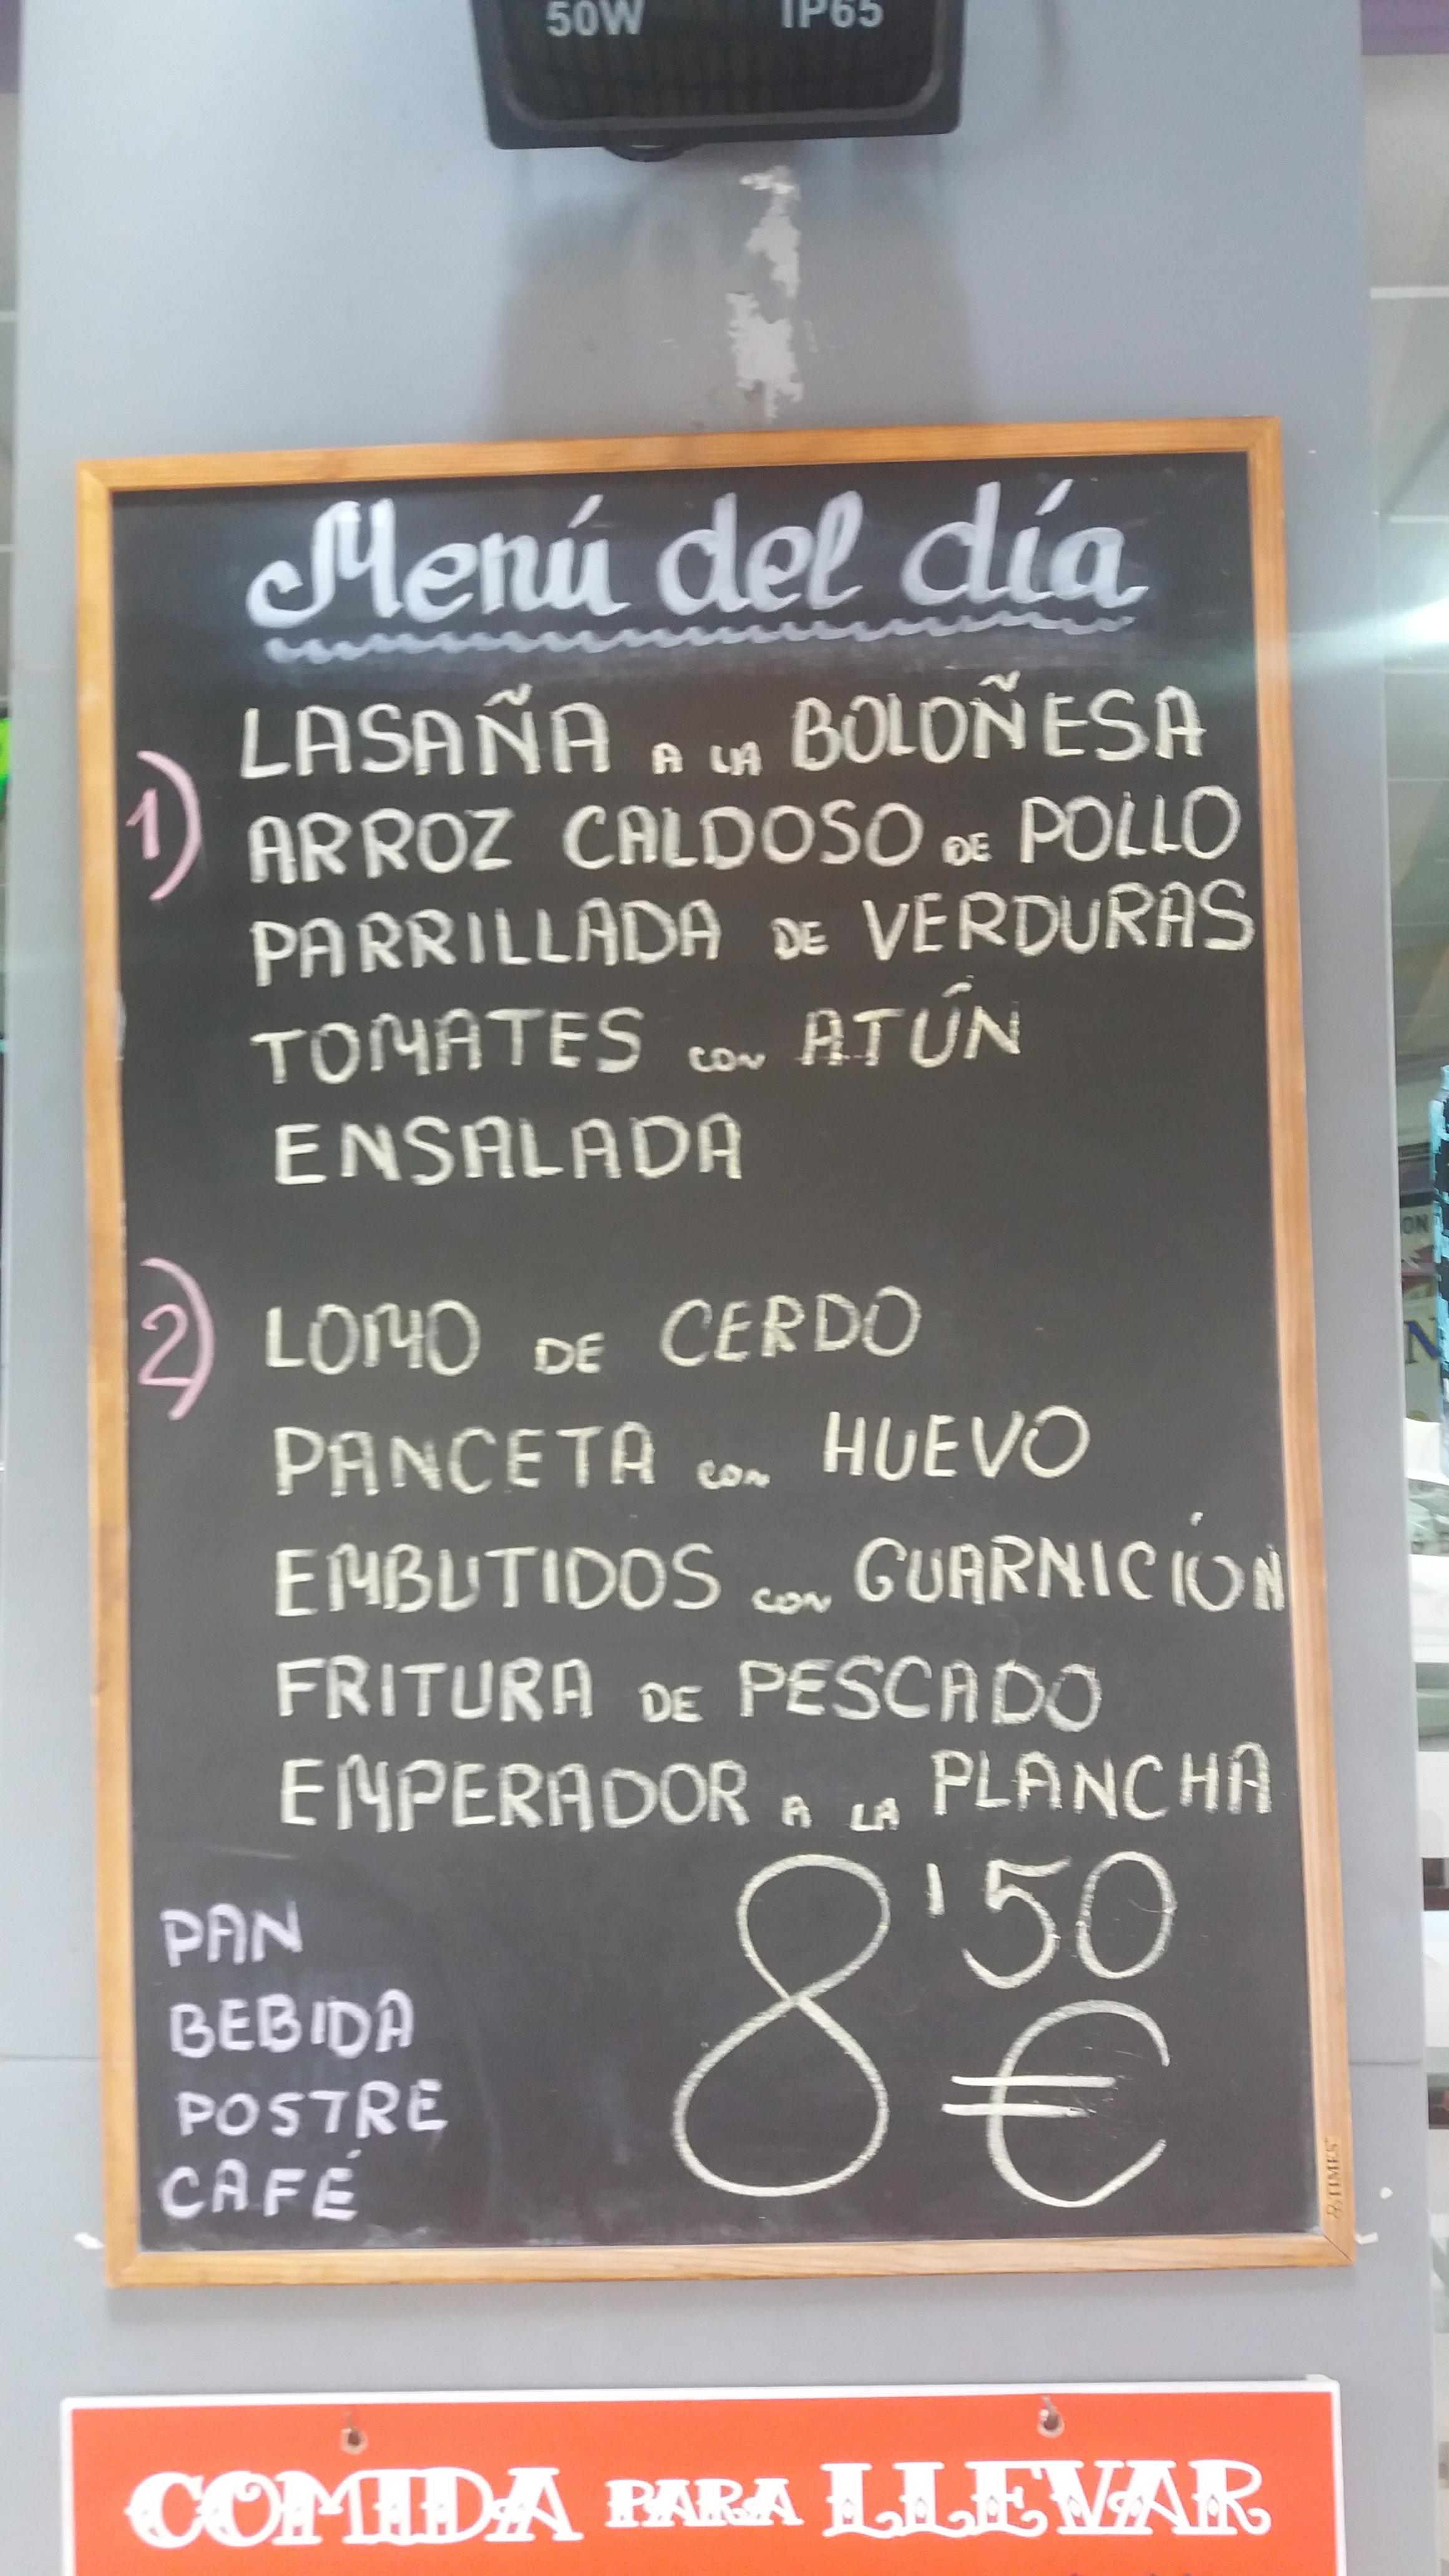 50W IP65
Menú del día
1)
LASAÑA A LA BOLOÑESA
ARROZ CALDOSO DE POLLO
PARRILLADA DE VERDURAS
TOMATES CON ATÚN
ENSALADA
2)
LOMO DE CERDO
PANCETA CON HUEVO
EMBUTIDOS CON GUARNICIÓN
FRITURA DE PESCADO
EMPERADOR A LA PLANCHA
PAN
BEBIDA
POSTRE
CAFÉ
8'50 €
TIMES
COMIDA PARA LLEVAR